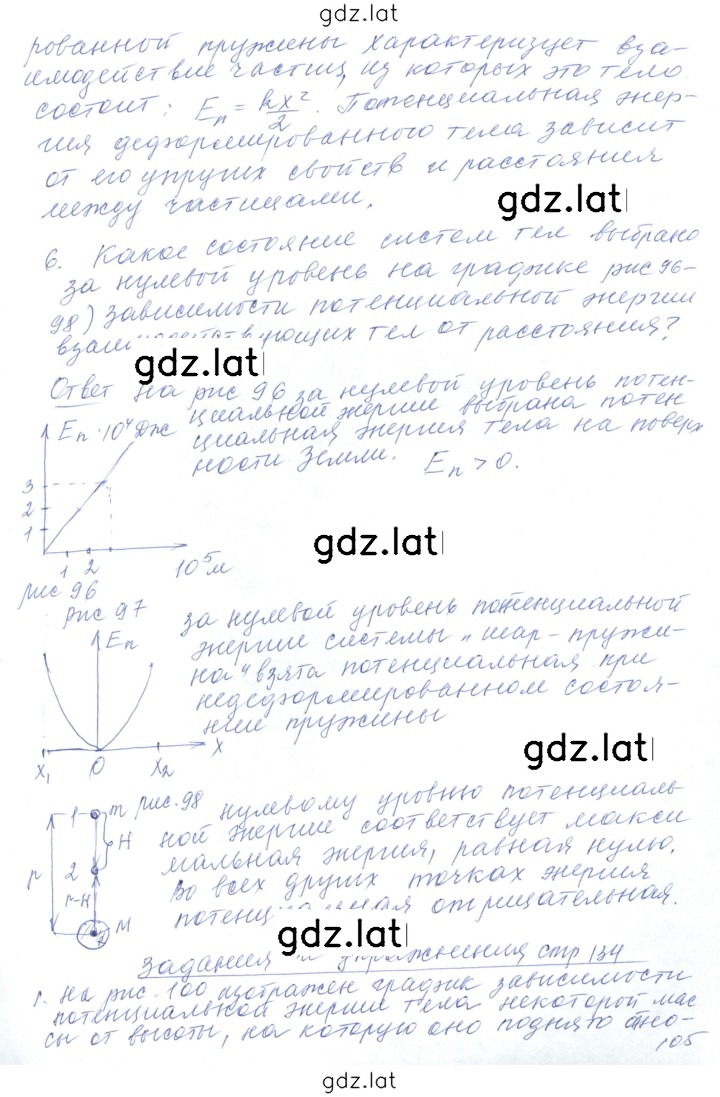 gdz.lat
рованной пружины характеризует вза-
имодействие частиц, из которых это тело
состоит: Eп = kx²/2. Потенциальная энер-
гия деформированного тела зависит
от его упругих свойств и расстояния
между частицами.
gdz.lat
6. Какое состояние систем тел выбрано
за нулевой уровень на графике рис 96-
98) зависимости потенциальной энергии
взаимодействующих тел от расстояния?
gdz.lat
Ответ на рис 96 за нулевой уровень потен-
циальной энергии выбрана потен
циальная энергия тела на поверх
ности Земли. Eп > 0.
Eп · 10⁴ Дж
3
2
1
1 2 10⁵ м
рис 96
gdz.lat
рис 97
Eп
x₁ 0 x₂ x
за нулевой уровень потенциальной
энергии системы „шар-пружи-
на" взята потенциальная при
недеформированном состоя-
нии пружины
gdz.lat
рис. 98
1 m
H
2
r
r-H
M
нулевому уровню потенциаль-
ной энергии соответствует макси
мальная энергия, равная нулю.
Во всех других точках энергия
потенциальная отрицательная.
gdz.lat
Задания и упражнения стр 134
1. На рис. 100 изображен график зависимости
потенциальной энергии тела некоторой мас
сы от высоты, на которую оно поднято отно-
105
gdz.lat